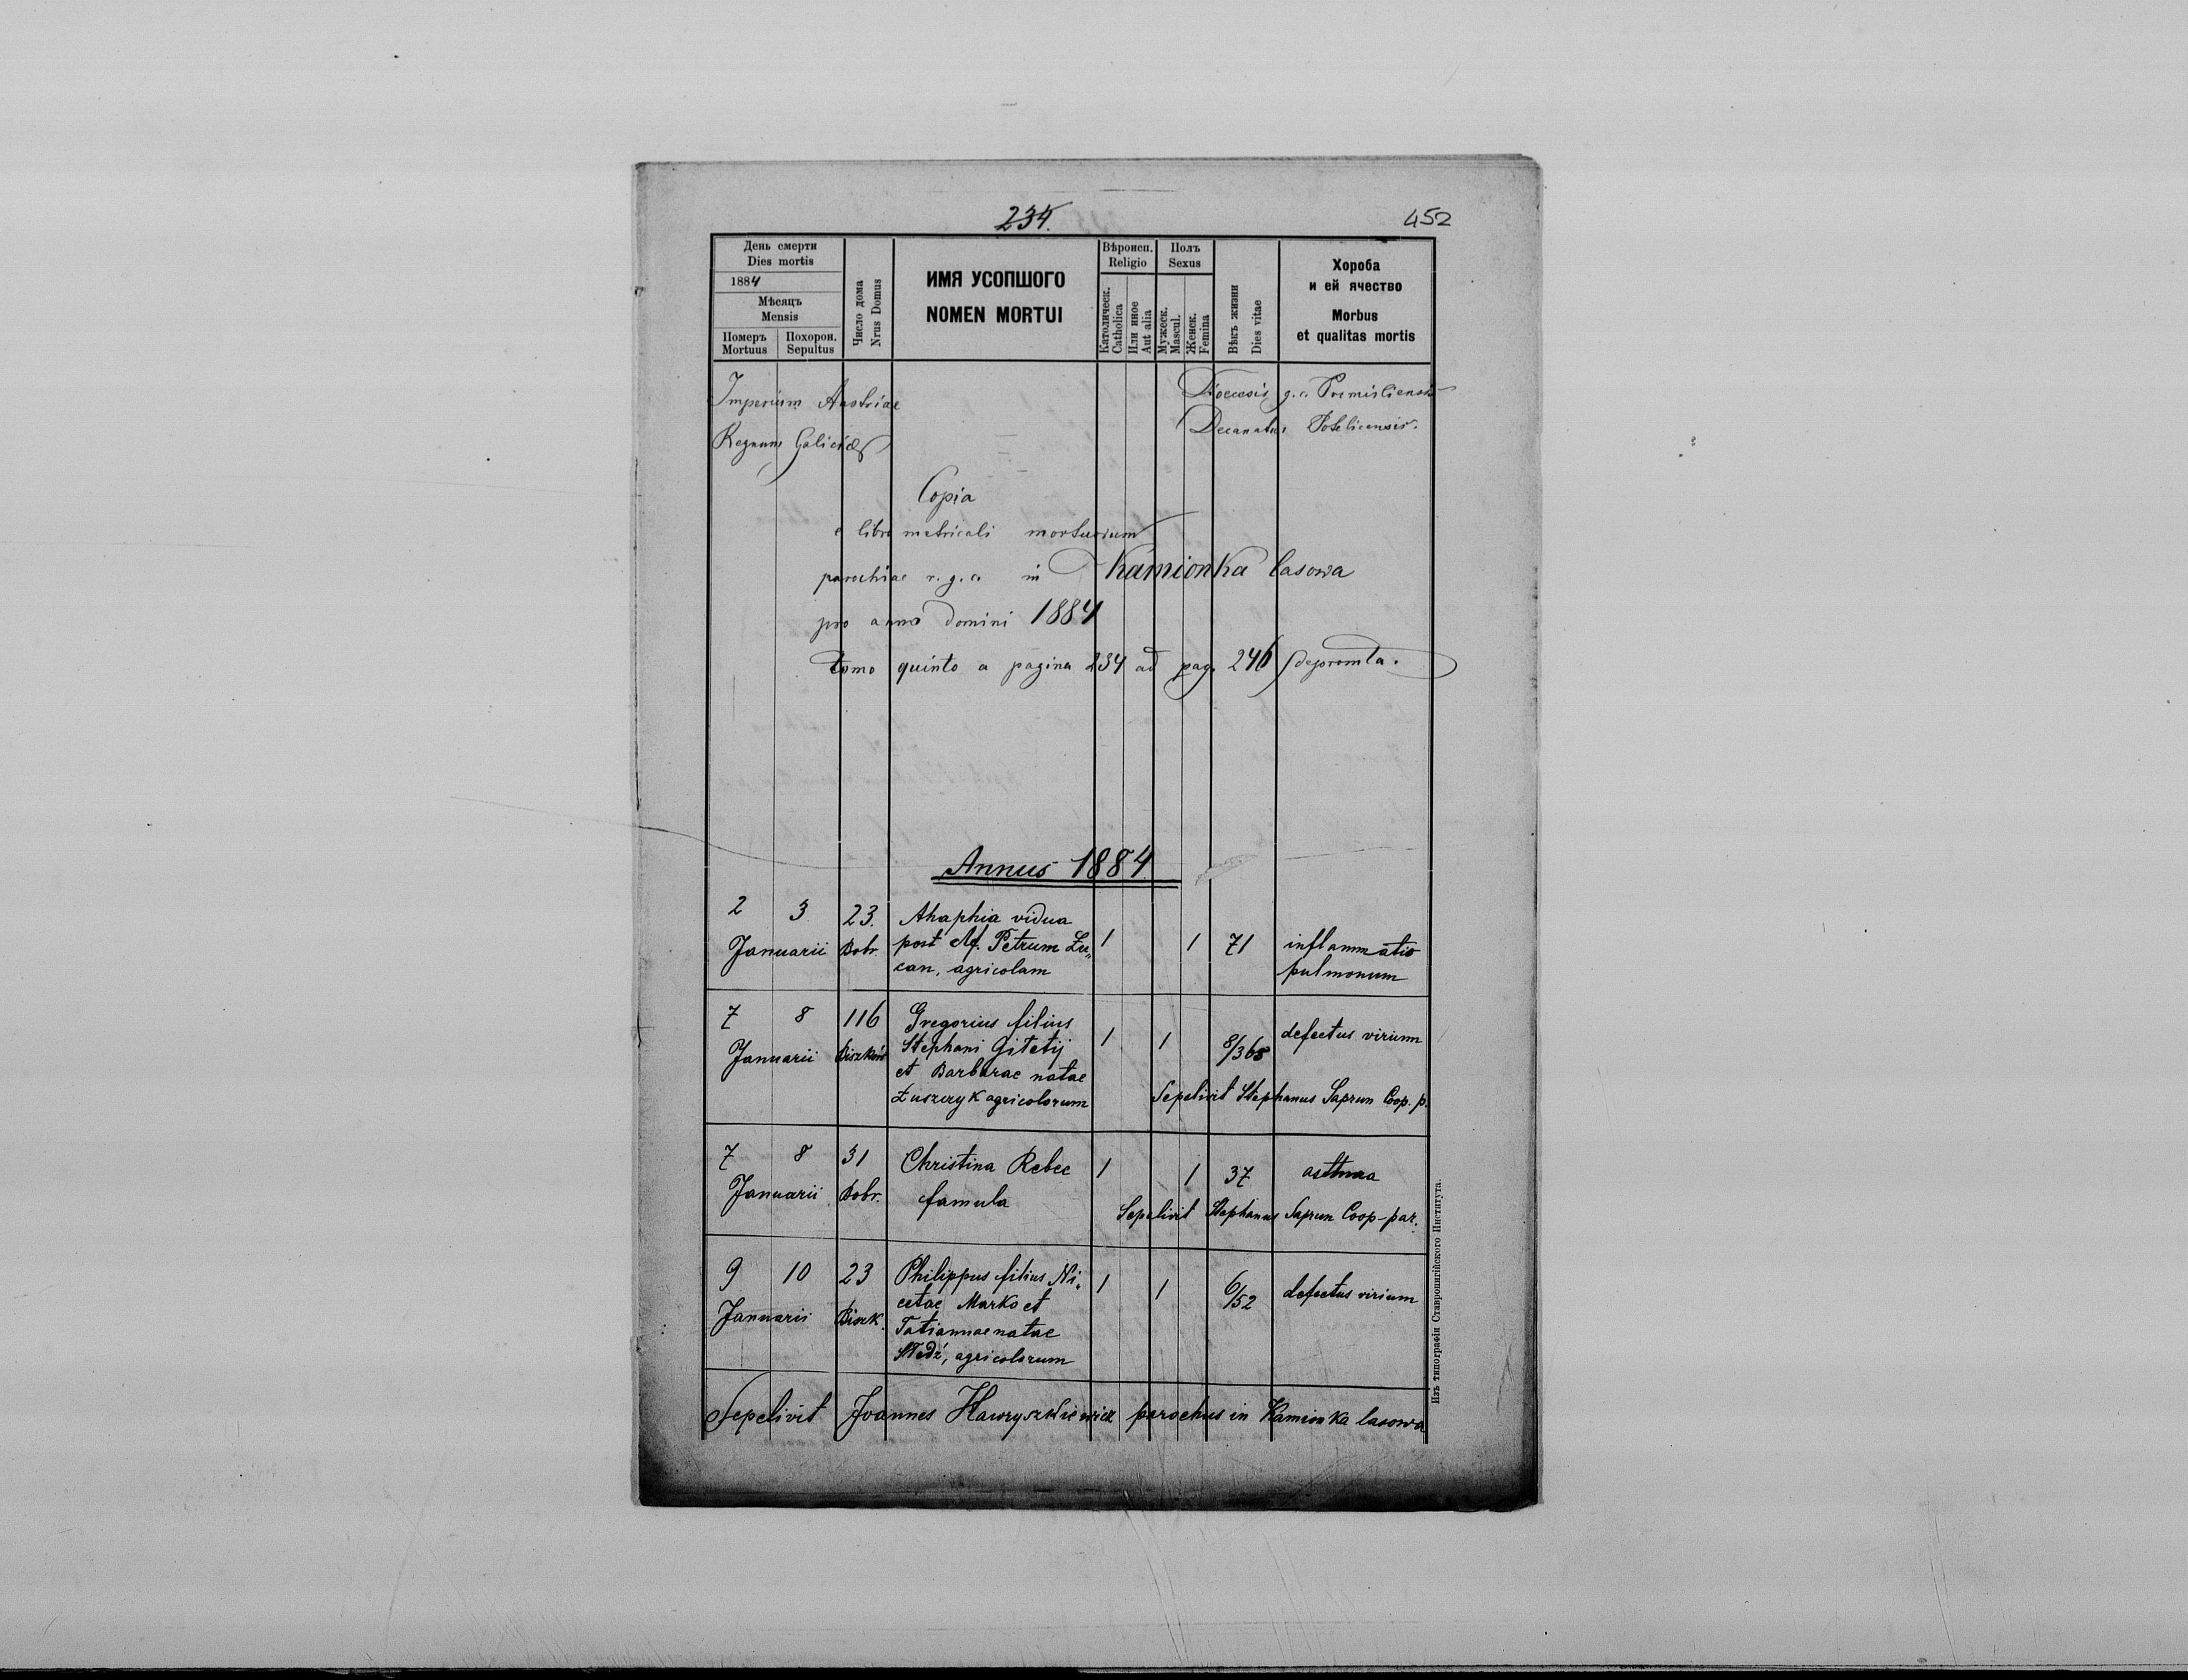 234.
452
День смерти
Dies mortis
1884
Мѣсяцъ
Mensis
Померъ
Mortuus
Похорон.
Sepultus
Число дома
Nrus Domus
ИМЯ УСОПШОГО
NOMEN MORTUI
Вѣроисп.
Religio
Католическ.
Catholica
Или иное
Aut alia
Полъ
Sexus
Мужеск.
Mascul.
Женск.
Femina
Вѣкъ жизни
Dies vitae
Хороба
и ей ячество
Morbus
et qualitas mortis
Imperium Austriae
Regnum Galiciae
Dioecesis g. c. Premisliensis
Decanatus Potelicensis.
Copia
e libro metricali mortuorum
parochiae r. g. c. in Kamionka lasowa
pro anno Domini 1884
tomo quinto a pagina 234 ad pag. 246 depromta.
Annus 1884
2 3 23. Ahaphia vidua
Januarii Bobr. post Petrum Lu„ 1 1 71 inflammatio
can, agricolam pulmonum
7 8 116 Gregorius filius
Januarii Stephani Gitetij 1 1 8/365 defectus virium
et Barbarae natae
Łuszczyk agricolorum Sepelivit Stephanus Saprun Coop. p.
7 8 31 Christina Rebec 1 1 37 asthma
Januarii Bobr. famula
Sepelivit Stephanus Saprun Coop-par.
9 10 23 Philippus filius Ni„ 1 1 6/52 defectus virium
Januarii Biszk. cetae Marko et
Tatiannae natae
agricolorum
Sepelivit Joannes Hawryszkiewicz parochus in Kamionka lasowa
Изъ типографіи Ставропигійского Института.